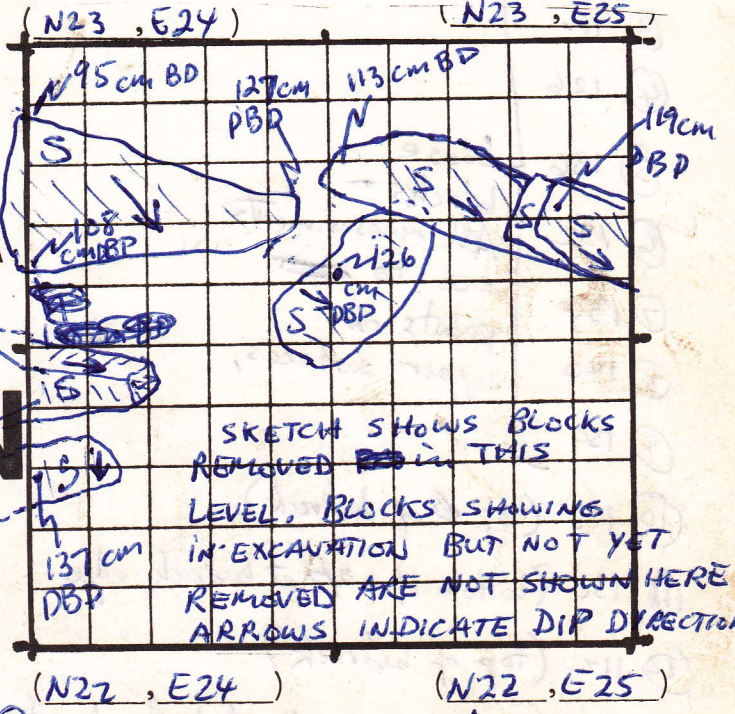 (N23 , E24)
(N23 , E25)
95 cm BD
127cm
DBD
113 cm BD
119cm
DBD
S
S
S
S
108
cmDBD
126
cm
DBD
S
S
S
137 cm
DBD
SKETCH SHOWS BLOCKS
REMOVED in THIS
LEVEL. BLOCKS SHOWING
IN EXCAVATION BUT NOT YET
REMOVED ARE NOT SHOWN HERE
ARROWS INDICATE DIP DIRECTION
(N22 , E24)
(N22 , E25)